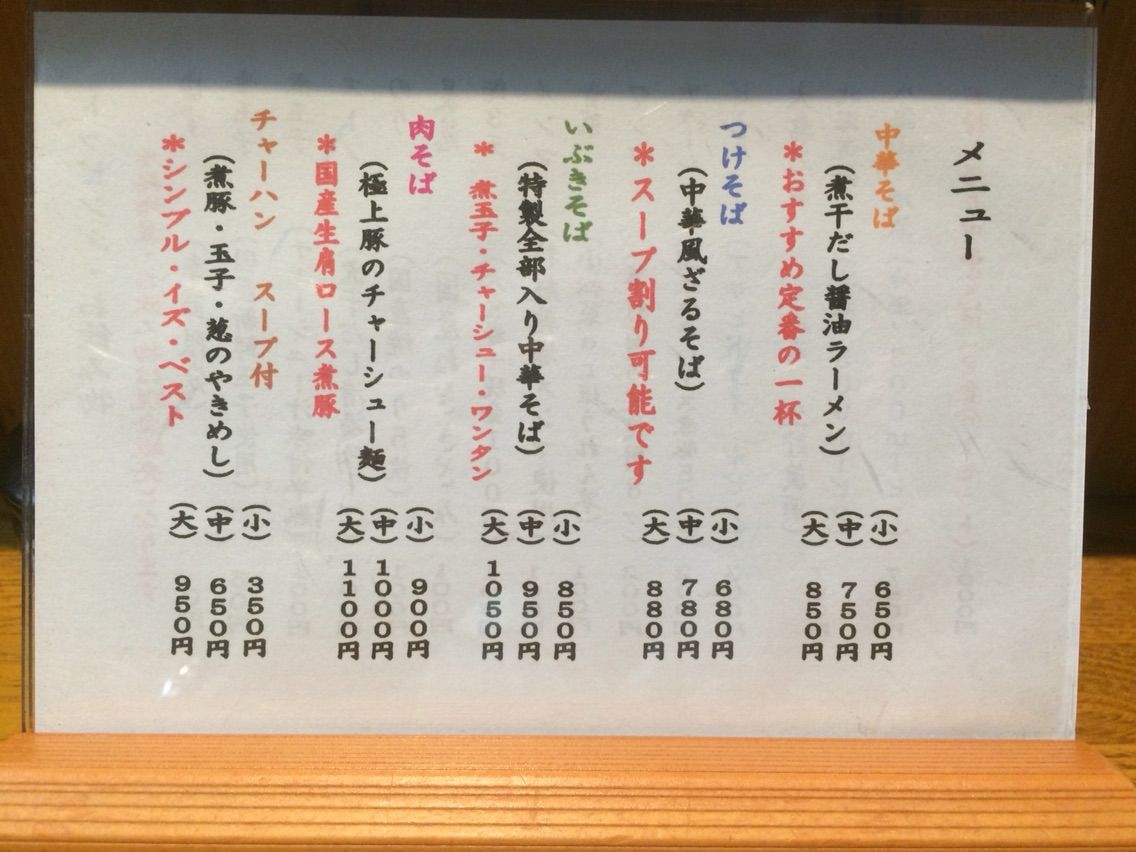 メニュー
中華そば
(煮干だし醤油ラーメン)
*おすすめ定番の一杯
(小) 650円
(中) 750円
(大) 850円
つけそば
(中華風ざるそば)
*スープ割り可能です
(小) 680円
(中) 780円
(大) 880円
いぶきそば
(特製全部入り中華そば)
* 煮玉子・チャーシュー・ワンタン
(小) 850円
(中) 950円
(大) 1050円
肉そば
(極上豚のチャーシュー麺)
*国産生肩ロース煮豚
(小) 900円
(中) 1000円
(大) 1100円
チャーハン スープ付
(煮豚・玉子・葱のやきめし)
*シンプル・イズ・ベスト
(小) 350円
(中) 650円
(大) 950円